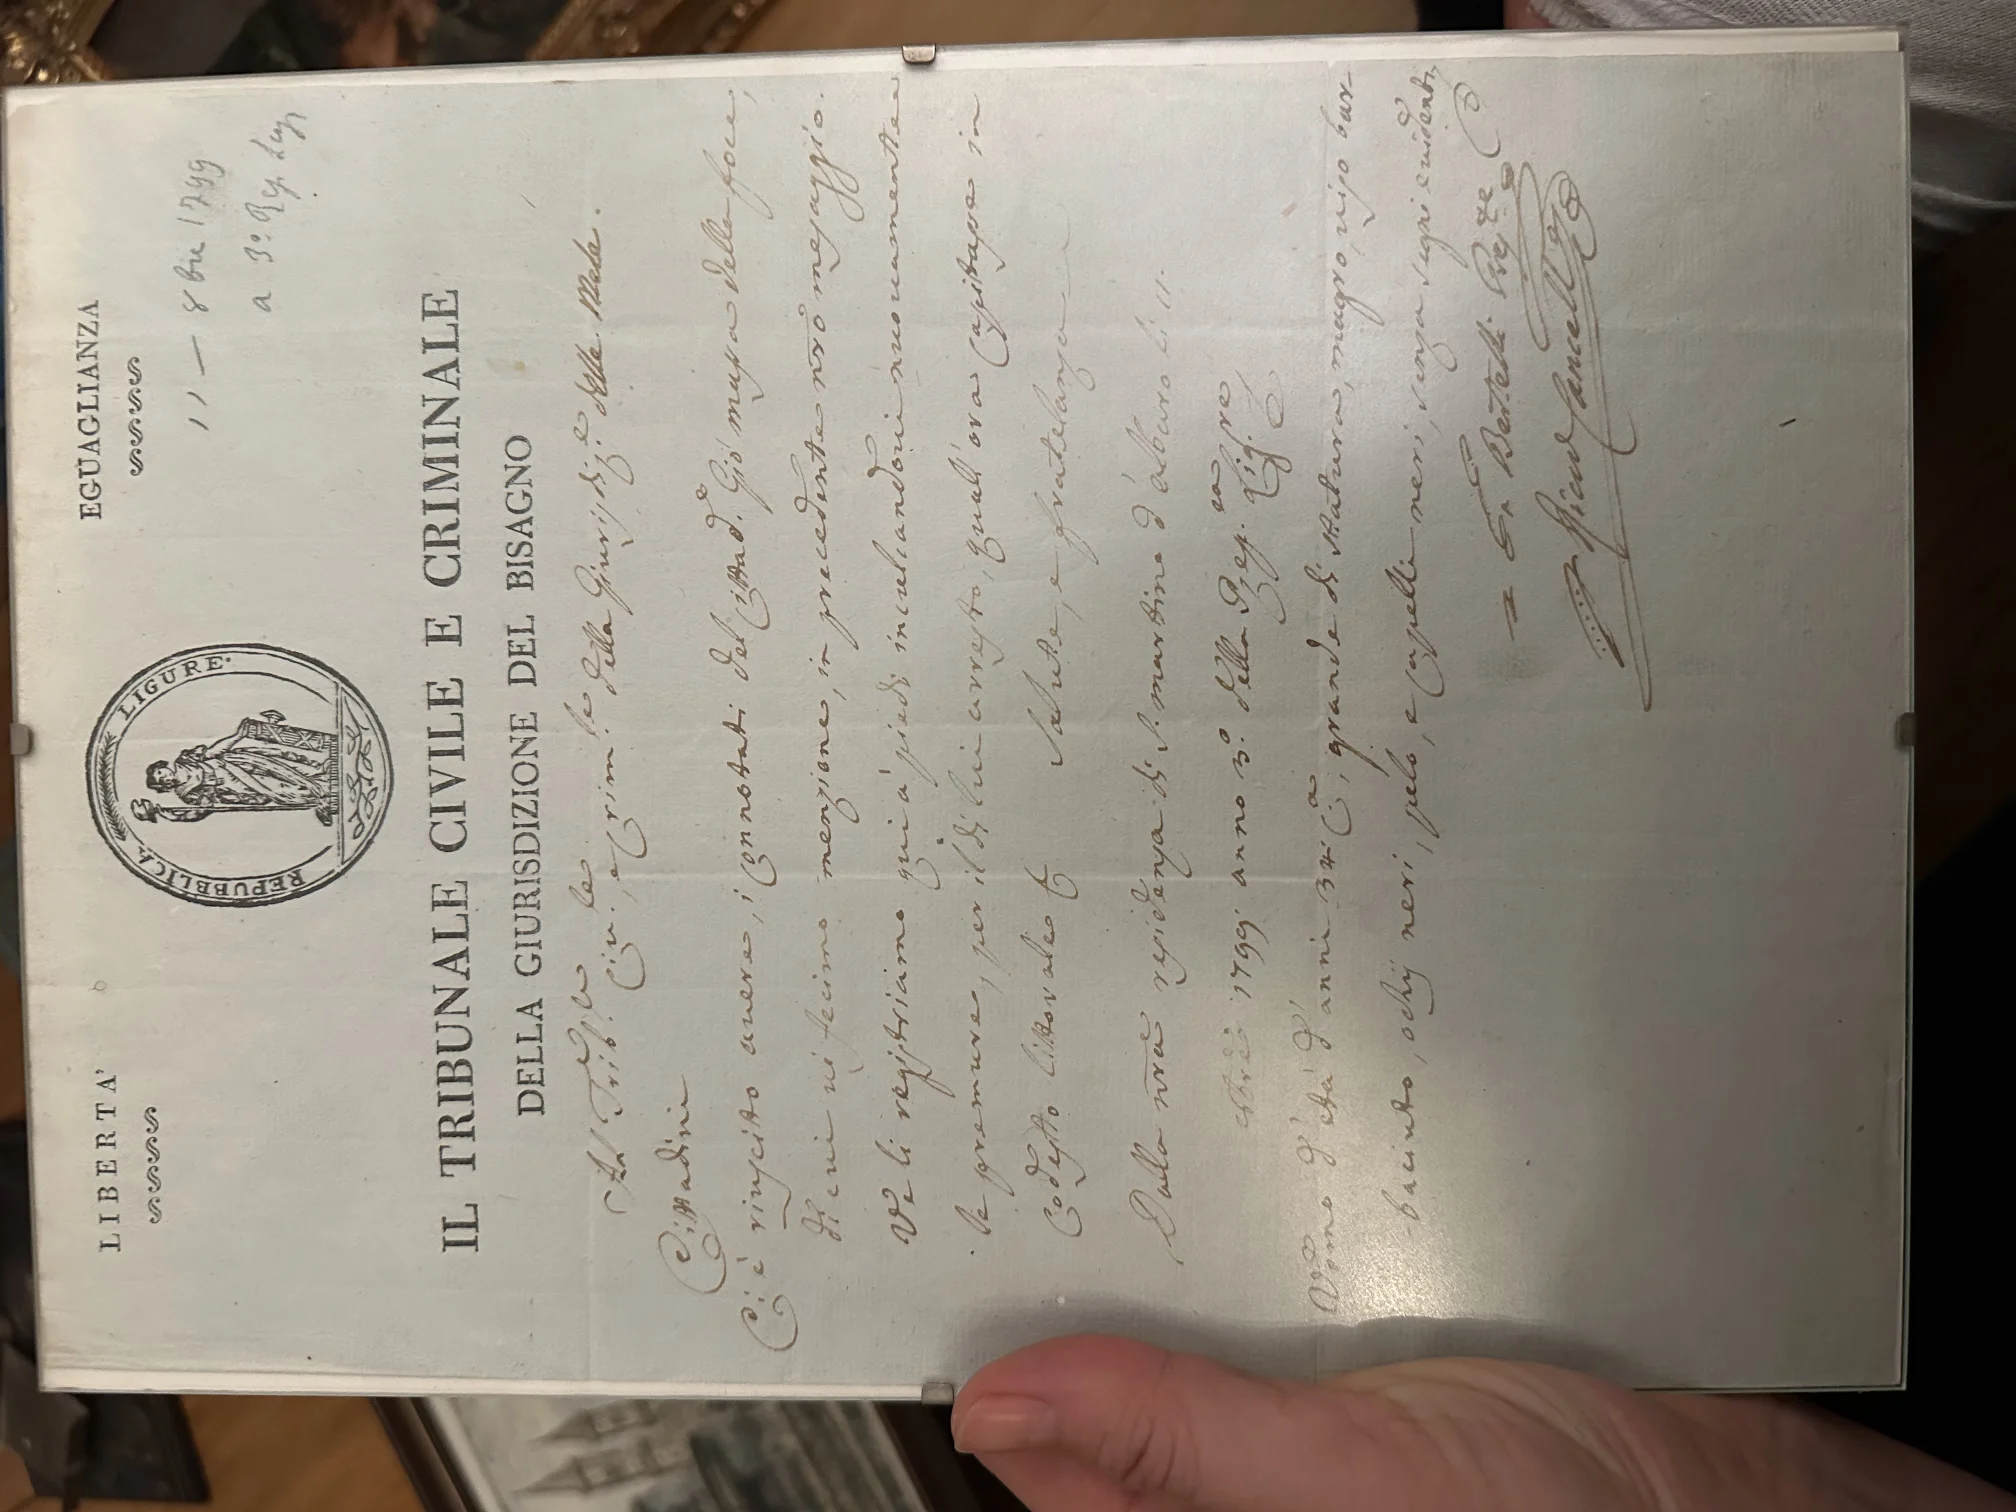 LIBERTA'
EGUAGLIANZA
REPUBBLICA LIGURE.
11 — 8bre 1799
a 3: Rep. Lig.
IL TRIBUNALE CIVILE E CRIMINALE
DELLA GIURISDIZIONE DEL BISAGNO
Al Trib.le Civ.le, e Crim.le della Giurisdiz.e delle
Cittadini
Ci è riuscito avere, i connotati del Cittad.o Gio
della foce,
di cui vi fecimo menzione, in precedente nrō mesaggio.
Ve li registriamo qui a' piedi inculcandovi nuovamente
le premure, per il di lui arresto, qual'ora capitasse in
codesto littorale
Salute, e fratelanza
Dalla nrā residenza di S. Martino d'Albaro li 11.
8bre 1799 anno 3.o della Rep.ca Lig.re
Uomo d'età d'anni 34 C.a, grande di statura, magro, viso bar-
baciuto, ochij neri, pelo, e capelli neri, senza segni evidenti
Bertelli Pres.te